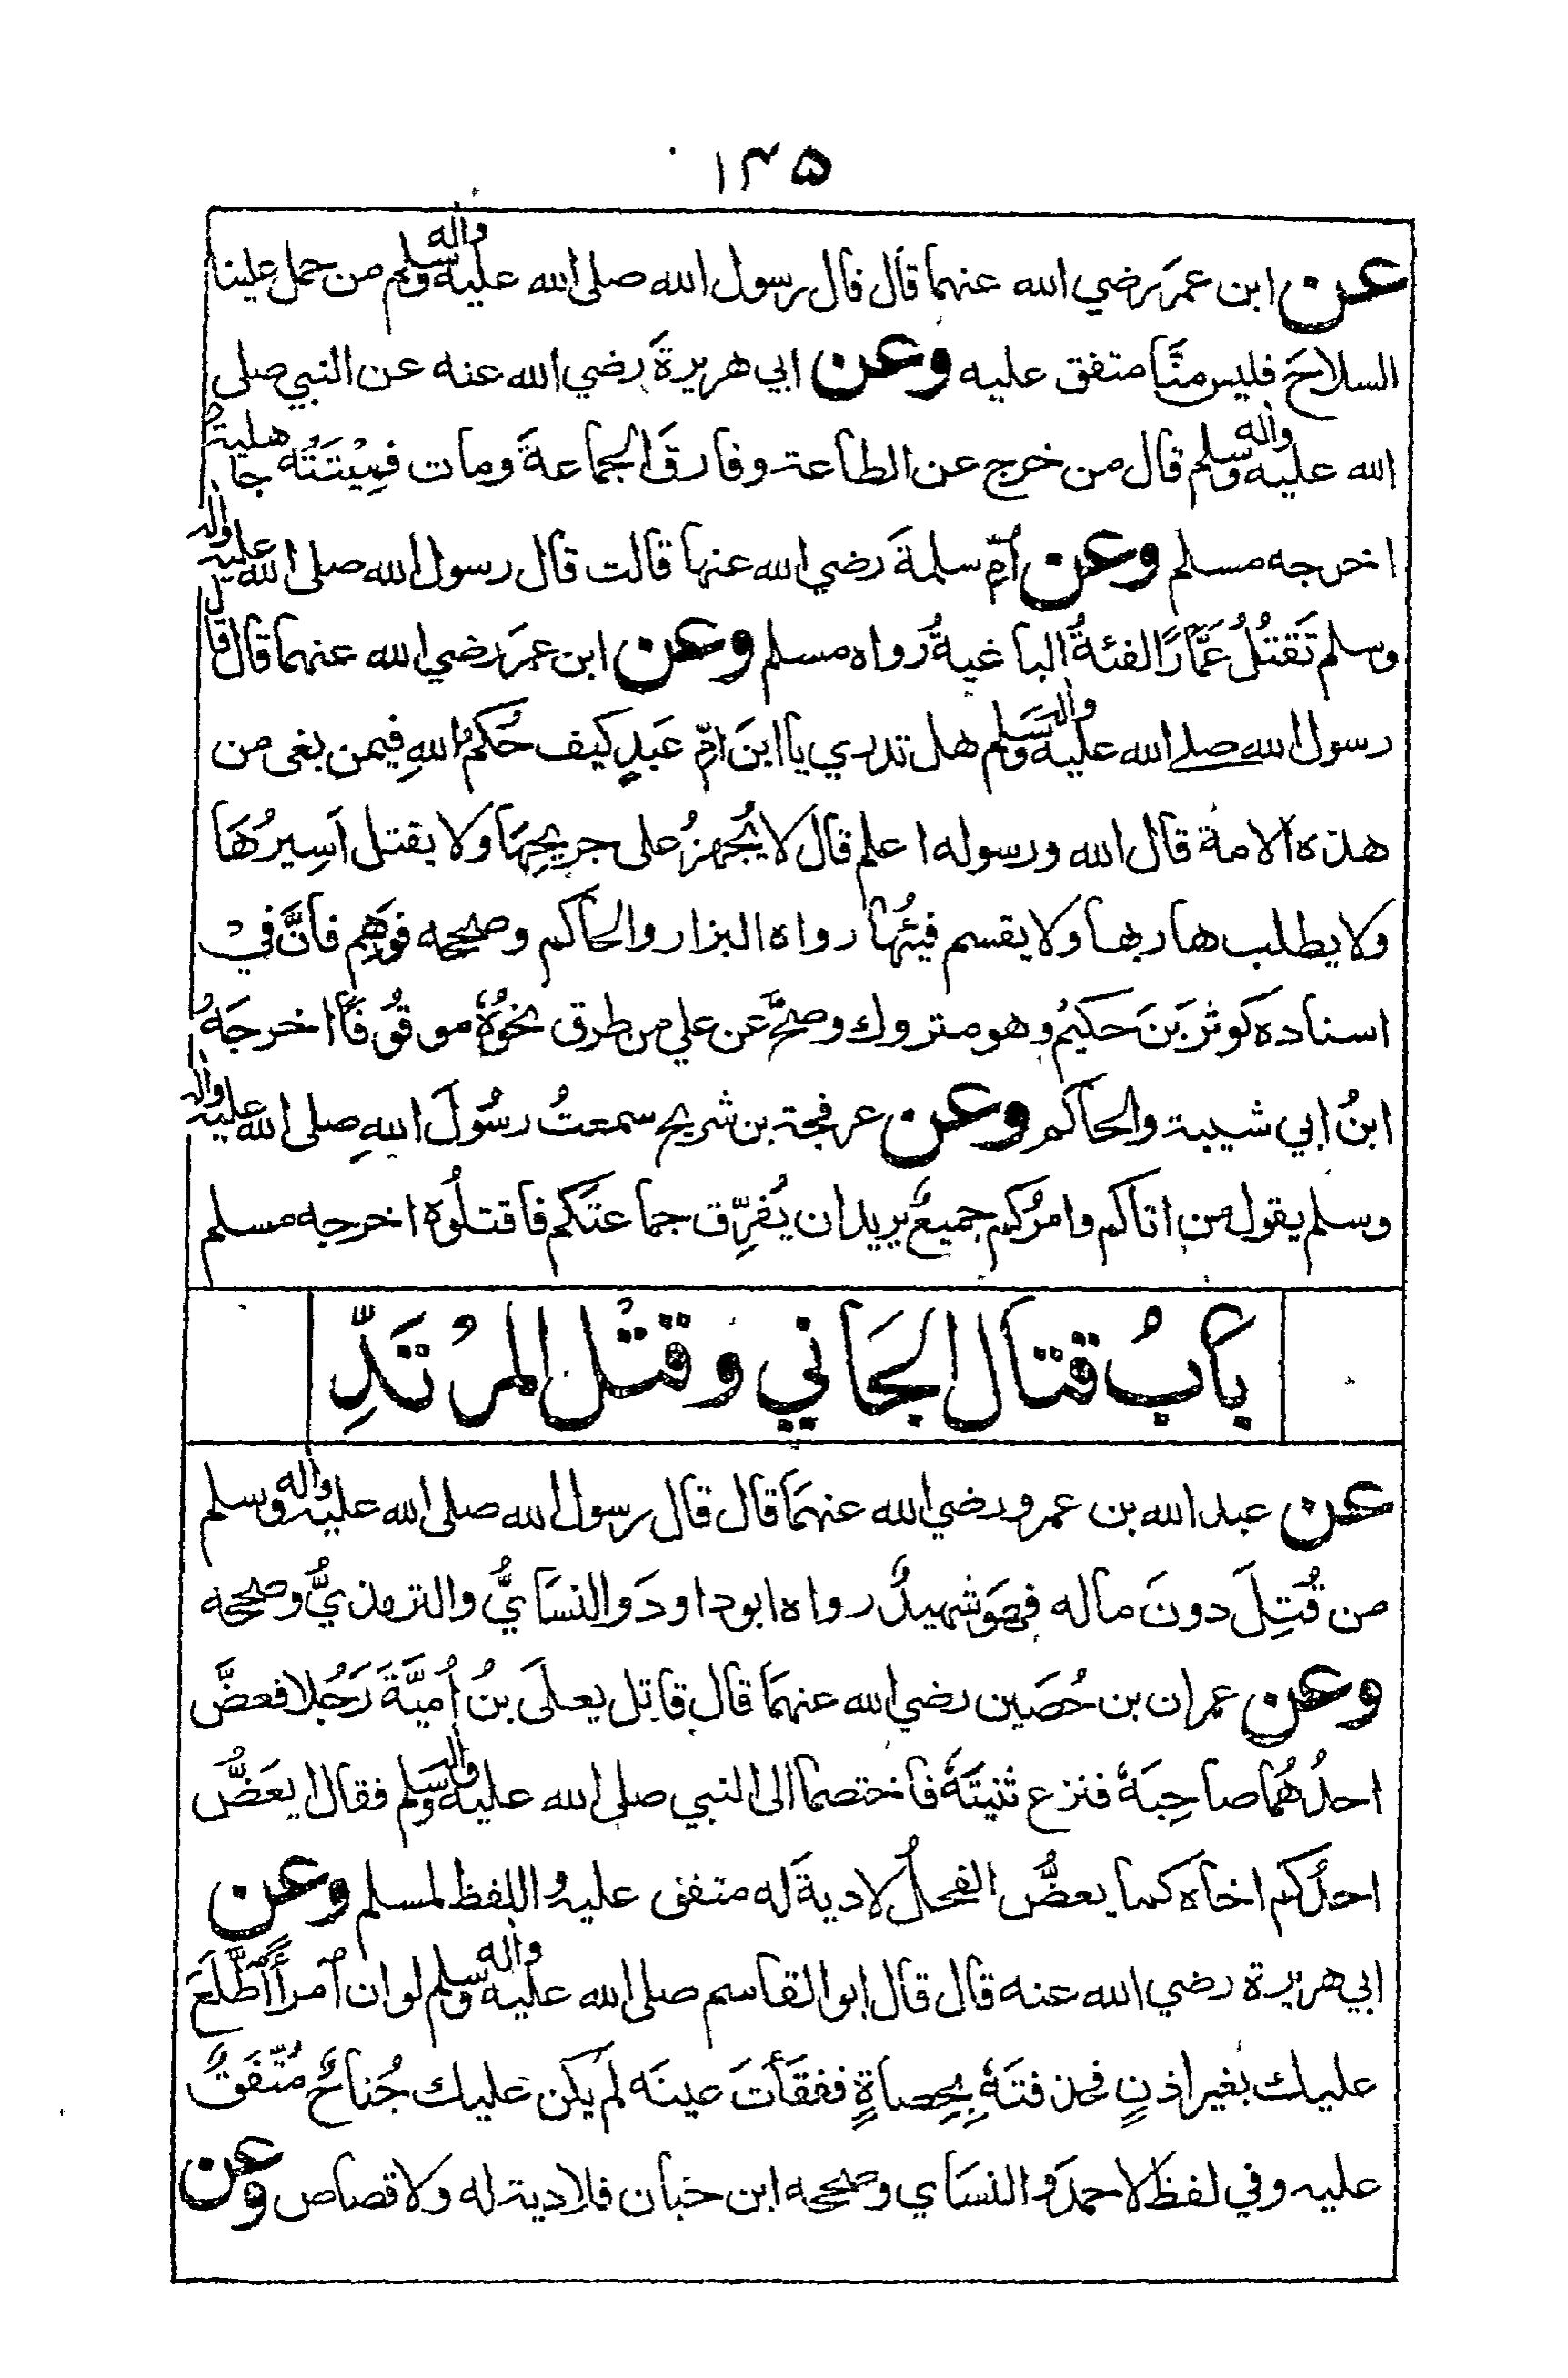 ١٣٥
عن ابن عمرَ رضي الله عنهما قال قال رسول الله صلى الله عليه واله وسلم من حمل علينا
السلاحَ فليس منَّا متفق عليه وعن ابي هريرةَ رضي الله عنه عن النبي صلى
الله عليه واله وسلم قال من خرج عن الطاعة وفارقَ الجماعةَ ومات فمِيْتَتُه جاهلية
اخرجه مسلم وعن أمِّ سلمةَ رضي الله عنها قالت قال رسول الله صلى الله عليه واله
وسلم تَقتُلُ عَمَّارًا الفئةُ الباغيةُ رواه مسلم وعن ابن عمرَ رضي الله عنهما قال قال
رسول الله صلے الله عليه واله وسلم هل تدري يا ابنَ امِّ عَبدٍ كيف حُكمُ اللهِ فيمن بغى من
هذه الامة قال الله ورسوله اعلم قال لا يُجهزُ على جريحِهَا ولا يقتل اَسِيرُهَا
ولا يطلب هاربها ولا يقسم فيئُها رواه البزار والحاكم وصححه فوَهِم فانَّ في
اسناده كوثرَ بَنَ حكيمُ وهو متروك وصحَّ عن علي من طرق نحوُهُ موقوُفًا اخرجَهُ
ابنُ ابي شيبة والحاكم وعن عرفجة بن شريح سمعتُ رسُولَ اللهِ صلى الله عليه واله
وسلم يقول من اتاكم وامرُكم جميعٌ يريد ان يُفرِّق جماعتَكم فاقتلُوه اخرجه مسلم
بابُ قتال الجَاني وقتْل المرُتَدِّ
عن عبد الله بن عمرو رضي الله عنهمَا قال قال رسول الله صلى الله عليه واله وسلم
من قُتِلَ دونَ ماله فهوَ شهيدٌ رواه ابو داودَ والنسَايُّ والترمذيُّ وصححه
وعن عمران بن حُصَين رضي الله عنهمَا قال قاتل يعلَى بنُ اُميَّةَ رَجُلا فعضَّ
احدُهُما صاحِبَهُ فنزع ثنيتَهُ فاختصما الى النبي صلى الله عليه واله وسلم فقال ايعَضُّ
احدُكم اخاه كما يعضُّ الفحلُ لا ديةَ له متفق عليه واللفظ لمسلم وعن
ابي هريرة رضي الله عنه قال قال ابو القاسم صلى الله عليه واله وسلم لو ان امرأً اطَّلَعَ
عليك بغير اذنٍ فحذفتَهُ بِحصاةٍ ففقَأتَ عينَه لم يكن عليك جُناحٌ مُتَّفَقٌ
عليه وفي لفظ لاحمدَ والنسَاي وصححه ابن حبان فلا دية له ولا قصاص وعن